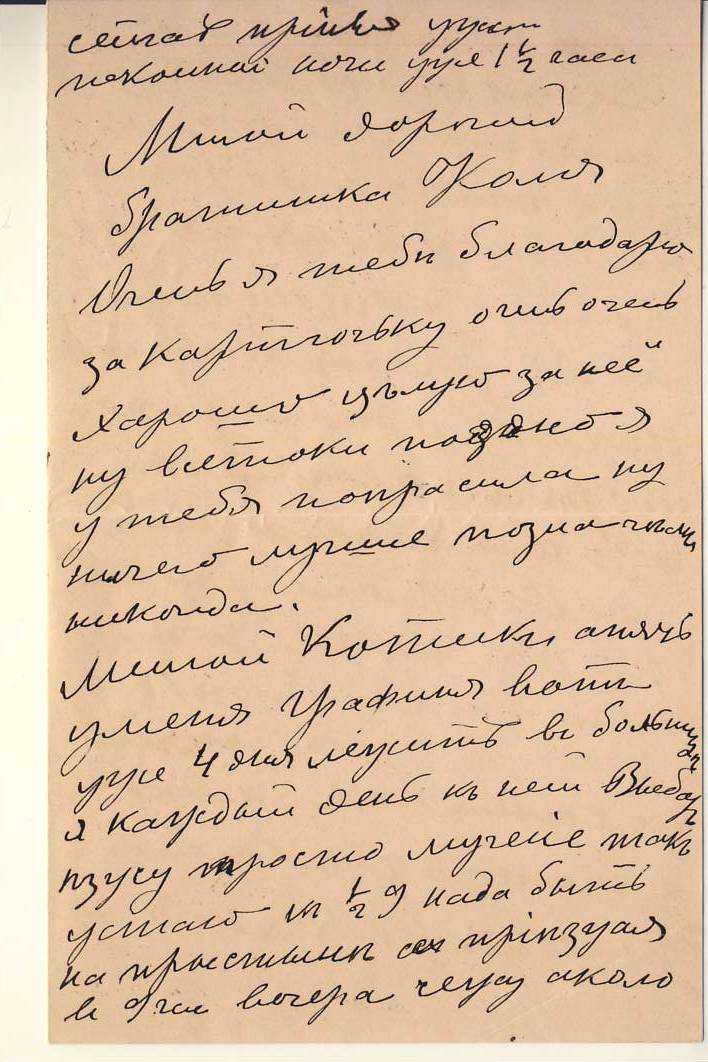 сейчас
покойной ночи уже 1 1/2 часа
Милой дорогой
братишка Коля
Очень я тебя благодарю
за карточьку очень очень
харошо цълую за неё
ну всётоки поздно я
у тебя попрасила ну
ничего лучше позна чъмъ
никогда.
Милой Котики апять
уменя графиня вотъ
уже 4 дня лежитъ въ больниц
я каждый день къ ней
просто мученіе такъ
устаю въ 1/2 9 нада быть
на
в 9 час вечера сежу около